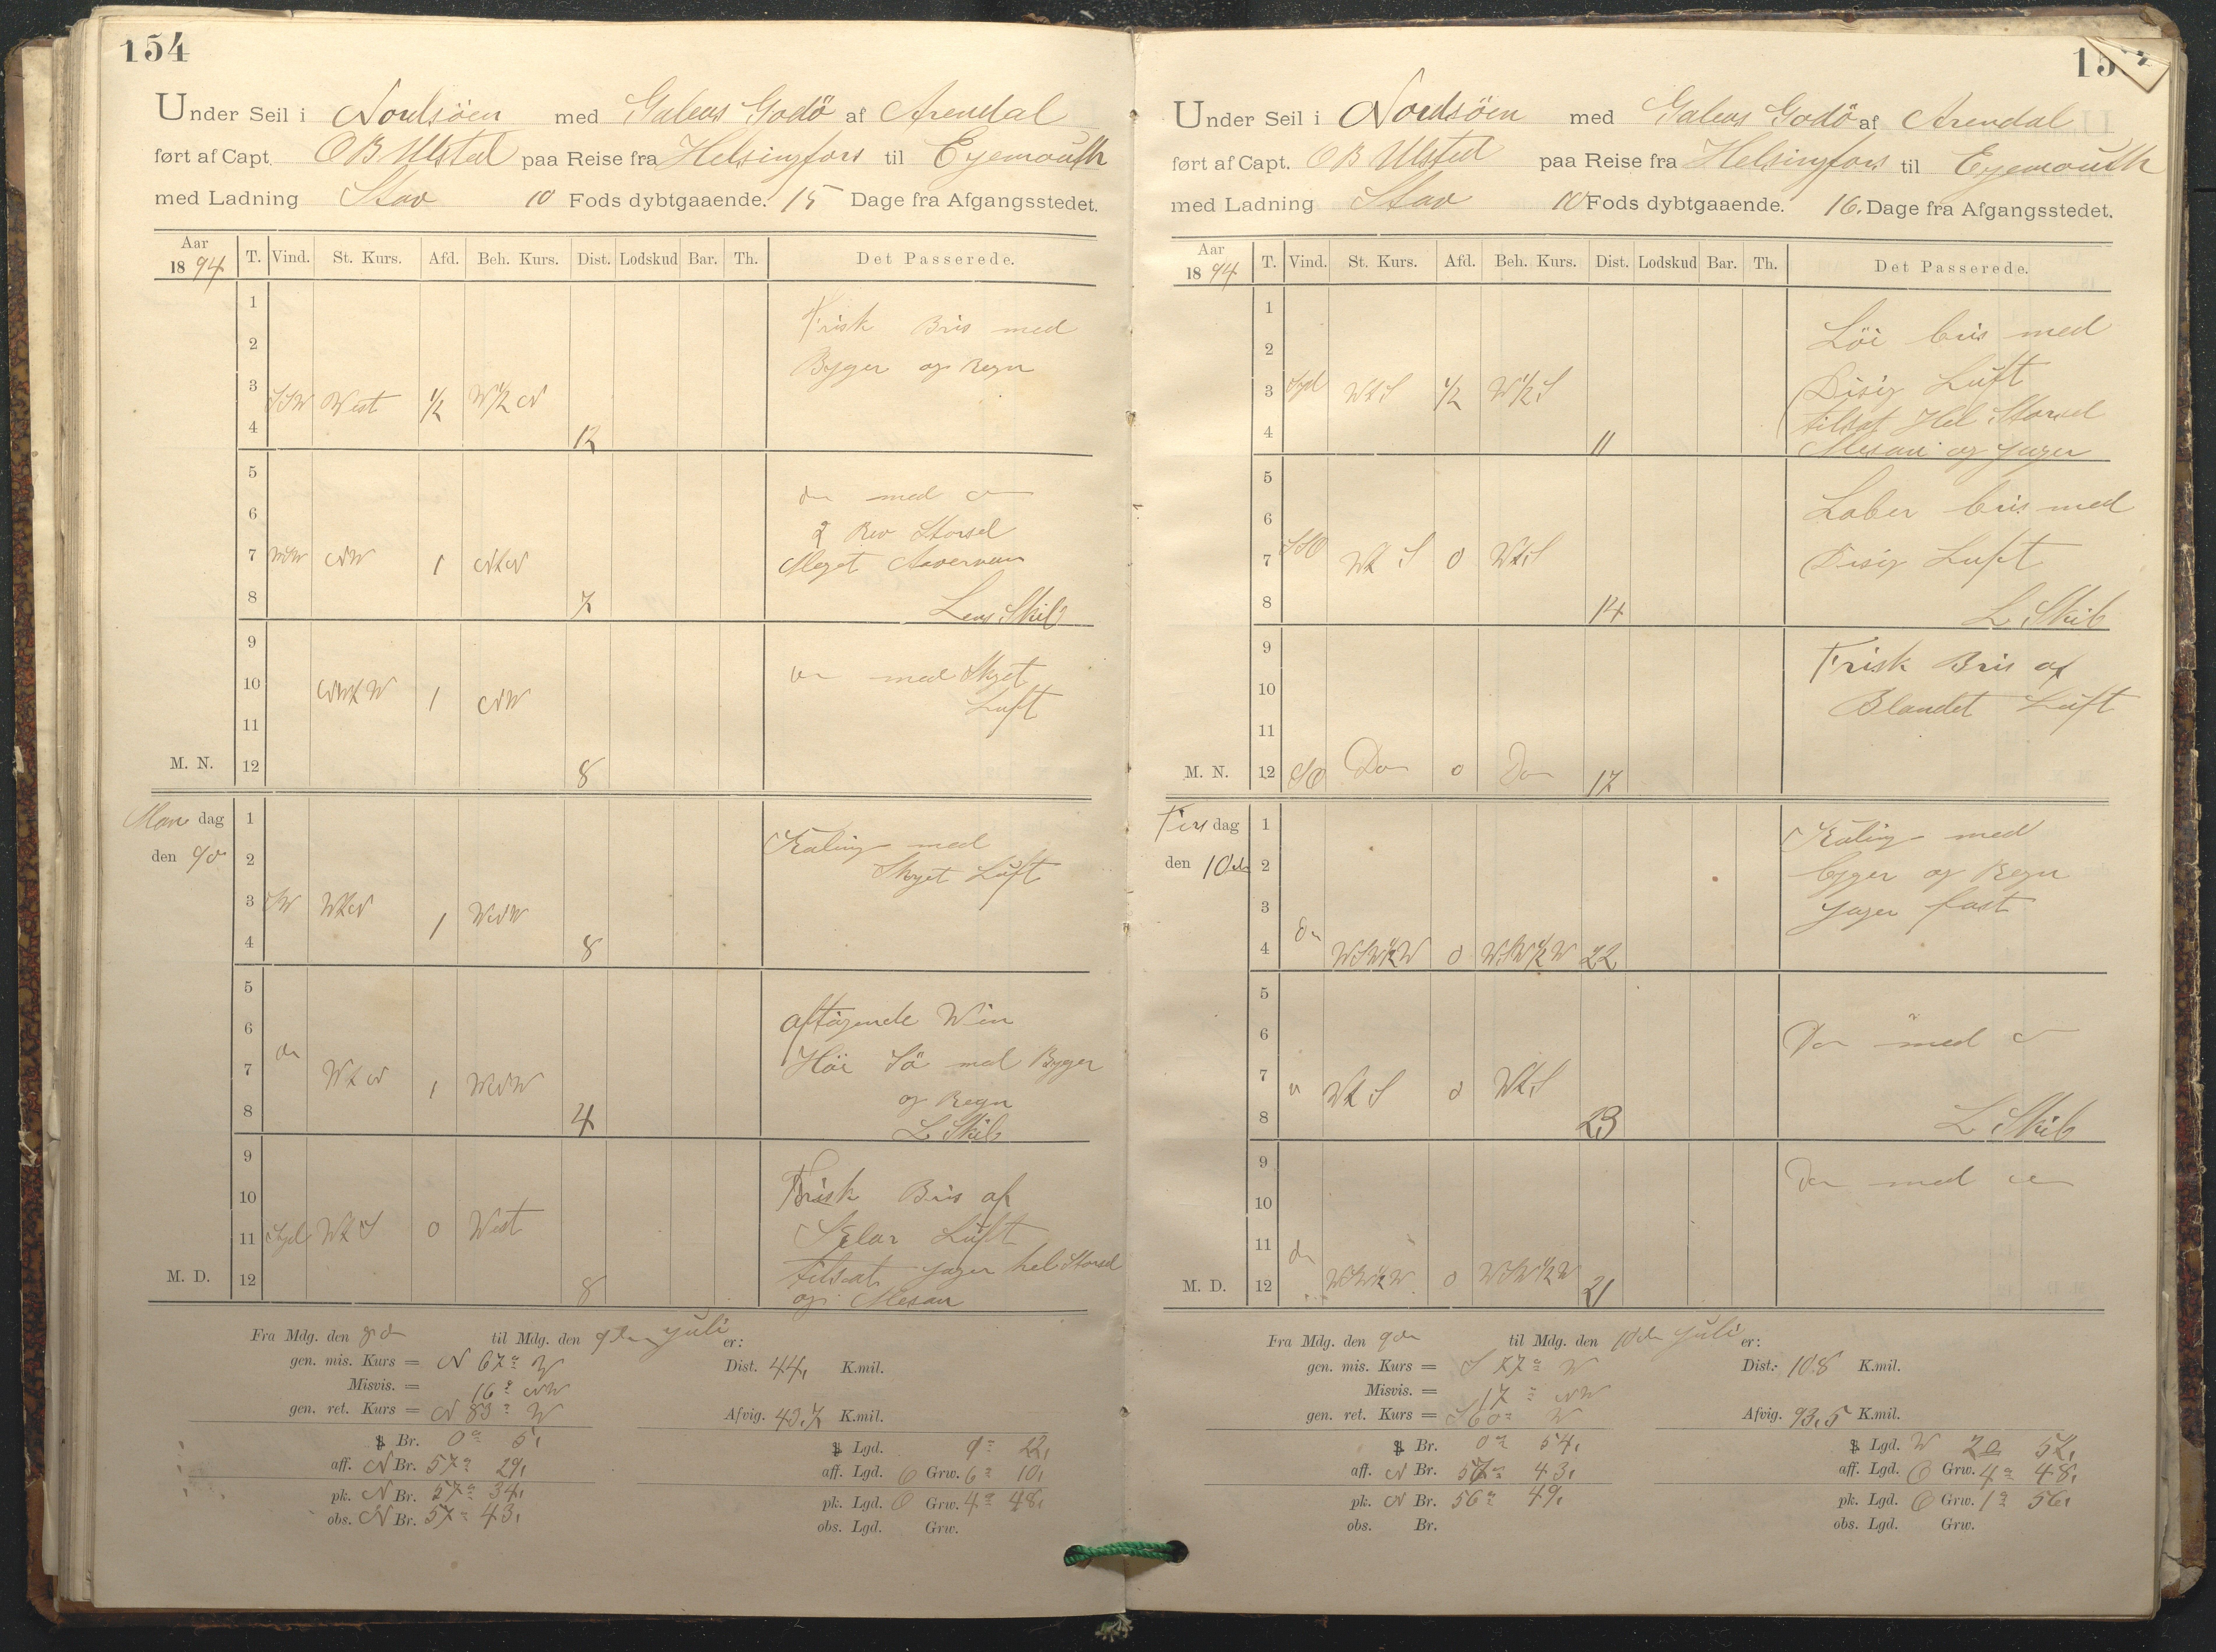 154
Under Seil i Nordsöen med Galeas Godö af Arendal
ført af Capt. OB Ulstad paa Reise fra Helsingfors til Eyemouth
med Ladning Stav 10 Fods dybtgaaende. 15 Dage fra Afgangsstedet.
Aar 1894 T. Vind. St. Kurs. Afd. Beh. Kurs. Dist. Lodskud Bar. Th. Det Passerede.
1
Frisk Bris med
2
Byger og Regn
3 SSW West 1/2 W1/2N
4 12
5
do med do
6
2 Rev Storsel
7 WSW NW 1 NtW
Meget Aavervan
8 7 Lens Skib
9
do med Skyet
10 NWtW 1 NW
Luft
11
M. N. 12 8
Mandag 1
Kuling med
den 9d 2
Skyet Luft
3 SW WtN 1 WNW
4 8
5
aftagende Win
6
do
Höi Sö med Byger
7 WtN 1 WNW
og Regn
8 4 L Skib
9
Frisk Bris af
10
11 Syd WtS 0 West
Sklar Luft
tilsat Jager hel Storsel
M. D. 12 8
og Mesan
Fra Mdg. den 8d til Mdg. den 9de Juli er:
gen. mis. Kurs = N 67° W Dist. 44, K.mil.
Misvis. = 16° NW
gen. ret. Kurs = N 83° W Afvig. 43,7 K.mil.
Br. 0° 5, Lgd. 1° 22,
aff. N Br. 57° 29, aff. Lgd. O Grw. 6° 10,
pk. N Br. 57° 34, pk. Lgd. O Grw. 4° 48,
obs. N Br. 57° 43, obs. Lgd. Grw.
15
Under Seil i Nordsöen med Galeas Godö af Arendal
ført af Capt. OB Ulsted paa Reise fra Helsingfors til Eyemouth
med Ladning Stav 10 Fods dybtgaaende. 16. Dage fra Afgangsstedet.
Aar 1894 T. Vind. St. Kurs. Afd. Beh. Kurs. Dist. Lodskud Bar. Th. Det Passerede.
1
Löi bris med
2
Disig Luft
3 Syd WtS 1/2 W1/2S
tilsat Hel Storsel
4 11
Mesan og Jager
5
Laber bris med
6
7 SSO WtS 0 WtS
Disig Luft
8 14 L Skib
9
Frisk Bris af
10
Blandet Luft
11
M. N. 12 SO Do 0 Do 17
Tirsdag 1
Kuling med
den 10de 2
Byger og Regn
3
Jager fast
4 do WSW1/2W 0 WSW1/2W 22
5
6
Do med do
7 " WtS 0 WtS
8 23 L Skib
9
Do med do
10
11 do
M. D. 12 WSW1/2W 0 WSW1/2W 21
Fra Mdg. den 9de til Mdg. den 10de Juli er:
gen. mis. Kurs = S 77° W Dist: 108 K.mil.
Misvis. = 17° NW
gen. ret. Kurs = S 60° W Afvig. 93,5 K.mil.
Br. 0° 54, Lgd. W 2° 52,
aff. N Br. 57° 43, aff. Lgd. O Grw. 4° 48,
pk. N Br. 56° 49, pk. Lgd. O Grw. 1° 56,
obs. Br. obs. Lgd. Grw.